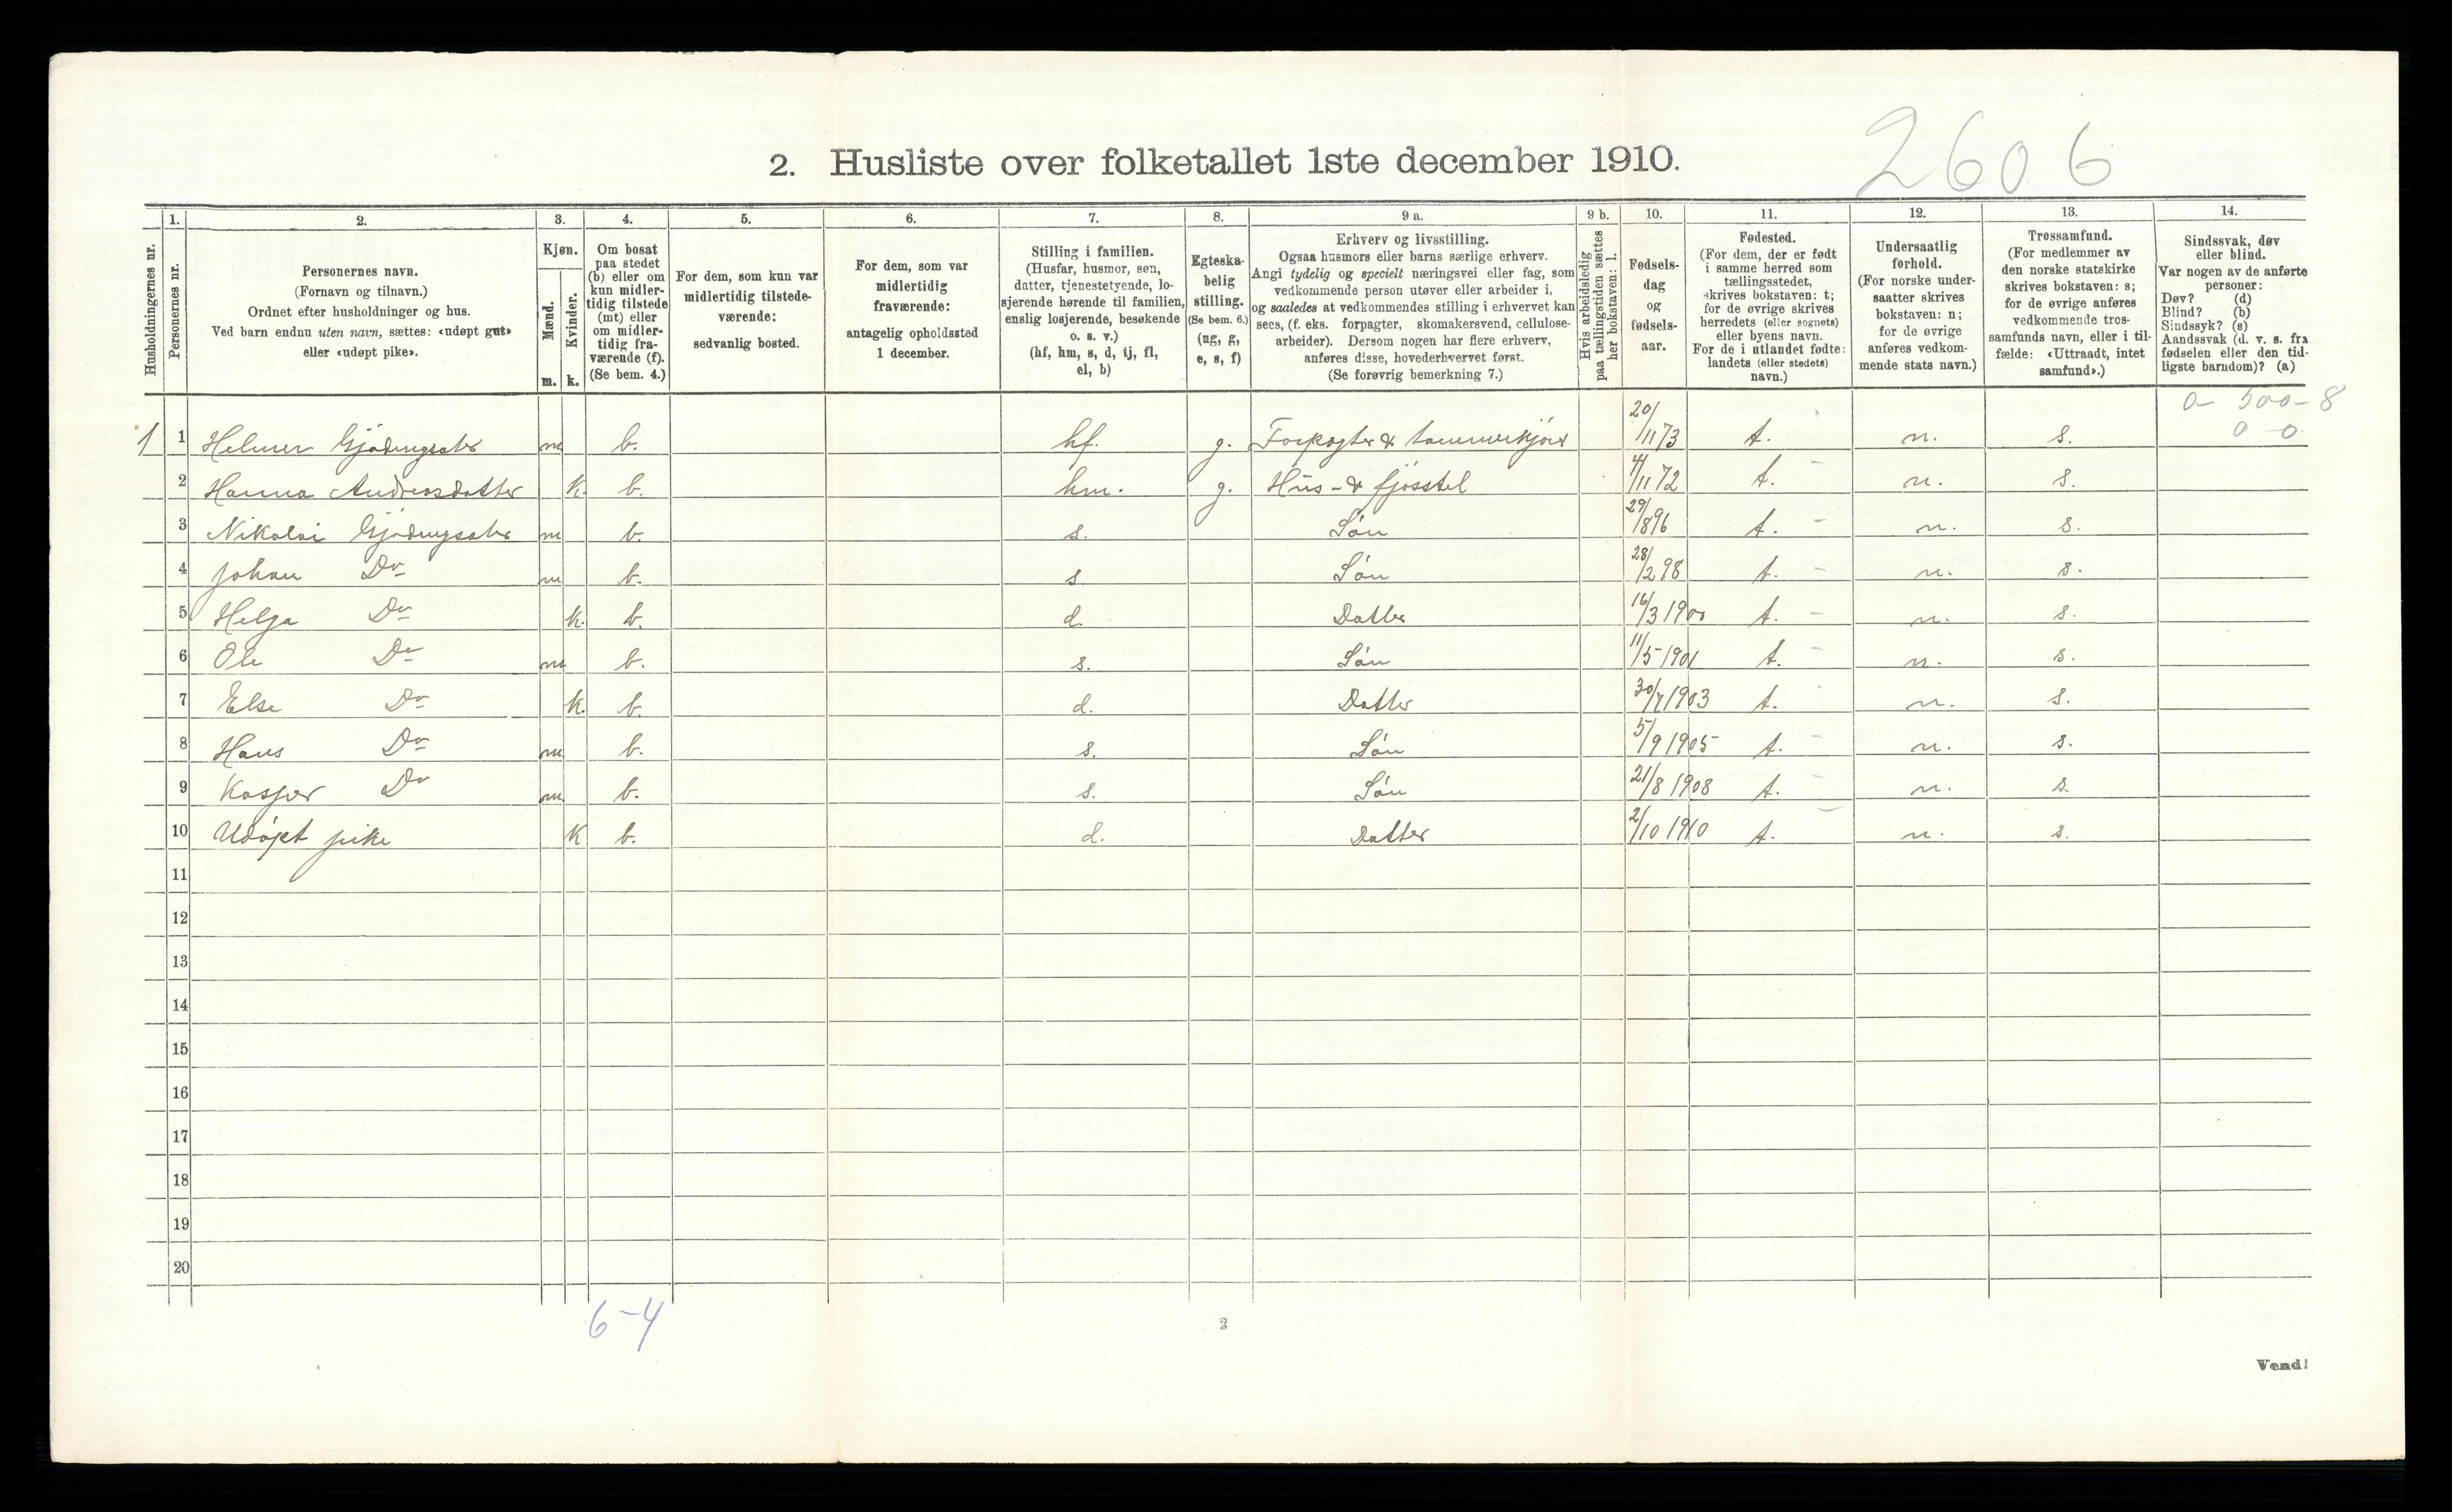 2606
2. Husliste over folketallet 1ste december 1910.
Husholdningernes nr.
1. Personernes nr.
2. Personernes navn.
(Fornavn og tilnavn.)
Ordnet efter husholdninger og hus.
Ved barn endnu uten navn, sættes: «udøpt gut»
eller «udøpt pike».
3. Kjøn.
Mænd. m.
Kvinder. k.
4. Om bosat
paa stedet
(b) eller om
kun midler-
tidig tilstede
(mt) eller
om midler-
tidig fra-
værende (f).
(Se bem. 4.)
5. For dem, som kun var
midlertidig tilstede-
værende:
sedvanlig bosted.
6. For dem, som var
midlertidig
fraværende:
antagelig opholdssted
1 december.
7. Stilling i familien.
(Husfar, husmor, søn,
datter, tjenestetyende, lo-
sjerende hørende til familien,
enslig losjerende, besøkende
o. s. v.)
(hf, hm, s, d, tj, fl,
el, b)
8. Egteska-
belig
stilling.
(Se bem. 6.)
(ug, g,
e, s, f)
9 a. Erhverv og livsstilling.
Ogsaa husmors eller barns særlige erhverv.
Angi tydelig og specielt næringsvei eller fag, som
vedkommende person utøver eller arbeider i,
og saaledes at vedkommendes stilling i erhvervet kan
sees, (f. eks. forpagter, skomakersvend, cellulose-
arbeider). Dersom nogen har flere erhverv,
anføres disse, hovederhvervet først.
(Se forøvrig bemerkning 7.)
9 b. Hvis arbeidsledig
paa tællingstiden sættes
her bokstaven: l.
10. Fødsels-
dag
og
fødsels-
aar.
11. Fødested.
(For dem, der er født
i samme herred som
tællingsstedet,
skrives bokstaven: t;
for de øvrige skrives
herredets (eller sognets)
eller byens navn.
For de i utlandet fødte:
landets (eller stedets)
navn.)
12. Undersaatlig
forhold.
(For norske under-
saatter skrives
bokstaven: n;
for de øvrige
anføres vedkom-
mende stats navn.)
13. Trossamfund.
(For medlemmer av
den norske statskirke
skrives bokstaven: s;
for de øvrige anføres
vedkommende tros-
samfunds navn, eller i til-
fælde: «Uttraadt, intet
samfund».)
14. Sindssvak, døv
eller blind.
Var nogen av de anførte
personer:
Døv? (d)
Blind? (b)
Sindssyk? (s)
Aandssvak (d. v. s. fra
fødselen eller den tid-
ligste barndom)? (a)
0- 500-8
0 0
1 1 Helmer m b. hf. g. Forpagter & tømmerkjører 20/11 73 t. n. s.
2 Hanna Andreasdatter k. b. hm. g. Hus- & fjøsstel 4/11 72 t. n. s.
3 Nikolai m b. s. Søn 29/8 96 t. n. s.
4 Johan Do m b. s. Søn 28/2 98 t. n. s.
5 Helga Do k. b. d. Datter 16/3 1900 t. n. s.
6 Ole Do m b. s. Søn 11/5-1901 t. n. s.
7 Else Do k. b. d. Datter 30/7 1903 t. n. s.
8 Hans Do m b. s. Søn 5/9 1905 t. n. s.
9 Kasper Do m b. s. Søn 21/8 1908 t. n. s.
10 Udøpt pike k b. d. Datter 2/10 1910 t. n. s.
11
12
13
14
15
16
17
18
19
20
6-4
2
Vend!